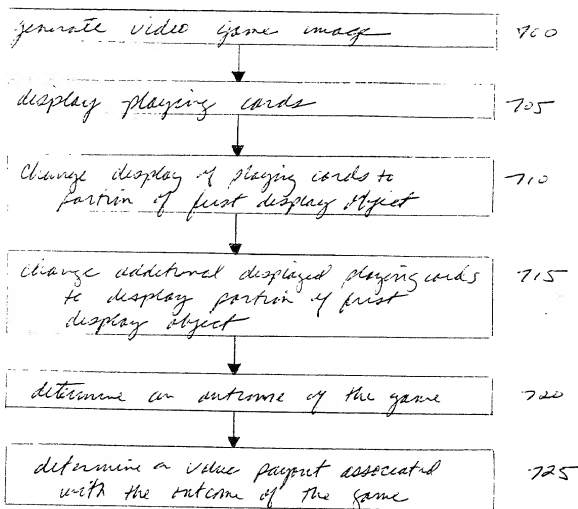 generate video game image 700
display playing cards 705
change display of playing cards to 710
portion of first display object
change additional displayed playing cards 715
to display portion of first
display object
determine an outcome of the game 720
determine a value payout associated 725
with the outcome of the game